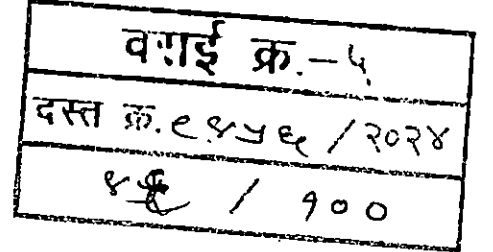 वसई क्र.-५
दस्त क्र. ९४५६ / २०२४
/ १००